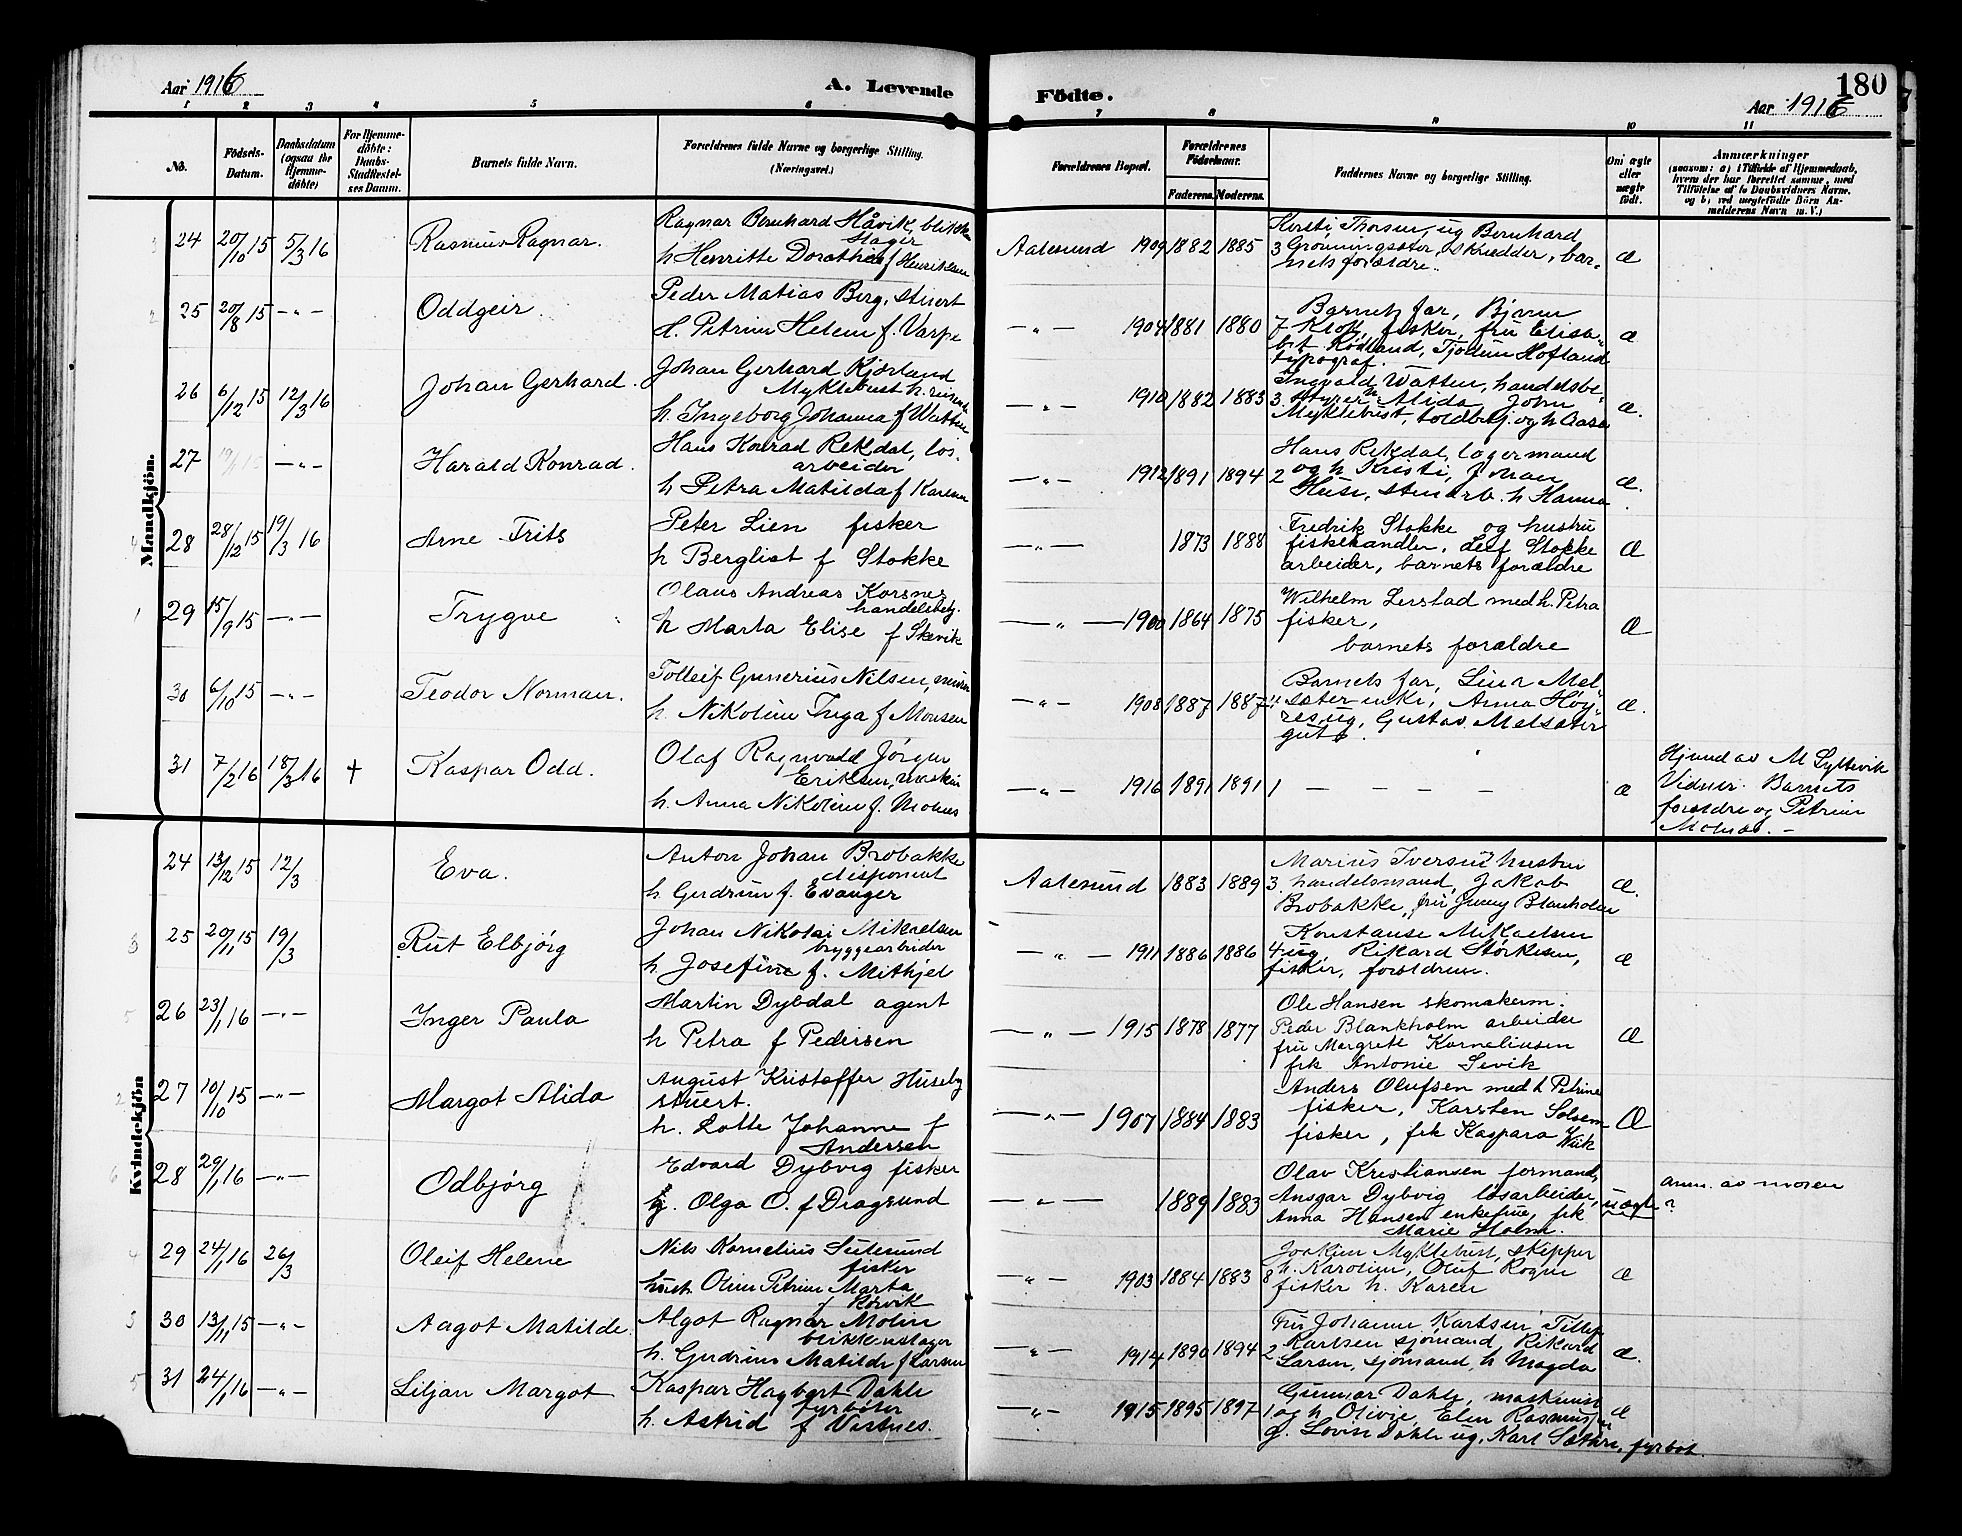 Aar 1916
A. Levende
Fødte.
180
Aar 1916
1 2 3 4 5 6 7 8 9 10 11
No.
Fødsels-Datum.
Daabsdatum (ogsaa for Hjemmedøbte)
For Hjemmedøbte: Daabs-Stadfæstelses Datum.
Barnets fulde Navn.
Forældrenes fulde Navne og borgerlige Stilling. (Næringsvei.)
Forældrenes Bopæl.
Forældrenes Fødselsaar.
Faderens. Moderens.
Faddernes Navne og borgerlige Stilling.
Om ægte eller uægte født.
Anmærkninger
(saasom: a) i Tilfælde af Hjemmedaab, hvem der har forrettet samme, med Tilføielse af to Daabsvidners Navne, og b) ved uægtefødte Børn Anmelderens Navn m. V.)
Mandkjön.
24 20/10 15 5/3 16 Rasmus Ragnar.
Ragnar Bernhard Håvik, blikken
slager
h Henritte Dorothea f Henriksen
Aalesund 1909 1882 1885
Kersti Thorsen, ug Bernhard
3 Grønningsæter, skrædder, bar-
nets forældre.
æ
25 20/8 15 -"- Oddgeir.
Peder Matias Berg, stuert
h. Petrine Helene f. Varpe
-"- 1904 1881 1880
Barnets far,
7 fisker, fru Elisa-
bet Rødland, Hofland
typograf.
æ
26 6/12 15 12/3 16 Johan Gerhard.
Johan Gerhard Kjørland
Myklebust h. reisende
h. Ingeborg Johanna f Watten
-"- 1910 1882 1883
Ingvald Watten, handelsbe-
3. styrer h Alida, John
Myklebust, toldbetj. og h Aasa
æ.
27 19/1 15 -"- Harald Konrad.
Hans Konrad Rekdal, løs.
arbeider
h Petra Matilda f Karlsen
-"- 1912 1891 1894
Hans Rekdal, lagermand
2 og h Kristi, Johan
Huse, stenarb. h Hanna
æ.
28 28/12 15 19/3 16 Arne Frits
Peter Lien fisker
h Berglist f Stokke
-"- 1873 1888
Fredrik Stokke og hustru
fiskehandler, Leif Stokke
arbeider, barnets forældre
Æ
29 15/9 15 -"- Trygve
Olaus Andreas Korsnes
handelsbetj.
h Marta Elise f Skevik
-"- 1900 1864 1875
Wilhelm Lerstad med h. Petra
fisker,
barnets forældre
Æ
30 6/10 15 -"- Teodor Norman.
Tolleif Gunerius Nilsen, murer
h. Nikoline Inga f Monsen
-"- 1908 1887 1887
Barnets far, Lina Mel-
sæter enke, Anna Høy-
res ug, Gustav Melsæter
gut.
æ.
31 7/2 16 18/3 16 + Kaspar Odd.
Olaf Ragnvald Jørgen
Eriksen, maskin
h. Anna Nikoline f. Molnes
-"- 1916 1891 1891 1 - - - - -
æ
Hjemd av M Syltevik
Vidner. Barnets
forældre og Petrine
Molnæs. -
Kvindekjön
24 13/12 15 12/3 Eva.
Anton Johan Brobakke
disponent
h. Gudrun f. Evanger
Aalesund 1883 1889
Marius Iversen hustru
3. handelsmand, Jakob
Brobakke, fru Jenny Blankholm
æ.
25 20/11 15 19/3 Rut Elbjørg
Johan Nikolai Mikaelsen
bryggearbeider
h Josefine f. Mitkjel
-"- 1911 1886 1886
Konstanse Mikaelsen
4 ug, Rikard Størkesen,
fisker, forældrene.
æ
26 23/1 16 -"- Inger Paula
Martin Dybdal agent
h Petra f Pedersen
-"- 1915 1878 1877
Ole Hansen skomakerm.
Peder Blankholm arbeider
fru Margrett Korneliussen
frk Antonie Sevik
Æ
27 10/10 15 -"- Margot Alida
August Kristoffer Huseby
stuert.
h. Lotte Johanne f
Andersen
-"- 1907 1884 1883
Anders Olufsen med h Petrine
fisker, Karsten Solsem
fisker, frk Kaspara Wiik
Æ
28 29/1 16 -"- Odbjørg
Edvard Dybvig fisker
g. Olga O. f Dragsund
-"- 1889 1883
Olav Kristiansen formand,
Ansgar Dybvig løsarbeider,
Anna Hansen enkefrue, frk
Marie Holm.
uægte?
anm. av moren
29 24/1 16 26/3 Oleif Helene
Nils Kornelius Sulesund
fisker
hustr. Oline Petrine Marta
f Rørvik
-"- 1903 1884 1883
Joakim Myklebust, skipper
8 h. Karoline, Oluf Rogne
fisker h. Karen
æ
30 13/11 15 -"- Aagot Matilde.
Algot Ragnar Molin
blikkenslager
h. Gudrun Matilde f Larsen
-"- 1914 1890 1894
Fru Johanne Karlsen
2. Karlsen sjømand Rikard
Larsen, sjømand, h Magda
æ.
31 24/1 16 -"- Liljan Margot
Kaspar Hagbart Dahle
fyrbøter
h. Astrid f Vestnes.
-"- 1915 1895 1897
Gunnar Dahle, maskinist
1 og h Olivie, Elen Rasmussen
g. Lovise Dahle ug, Karl Sætre, fyrbøt.
æ